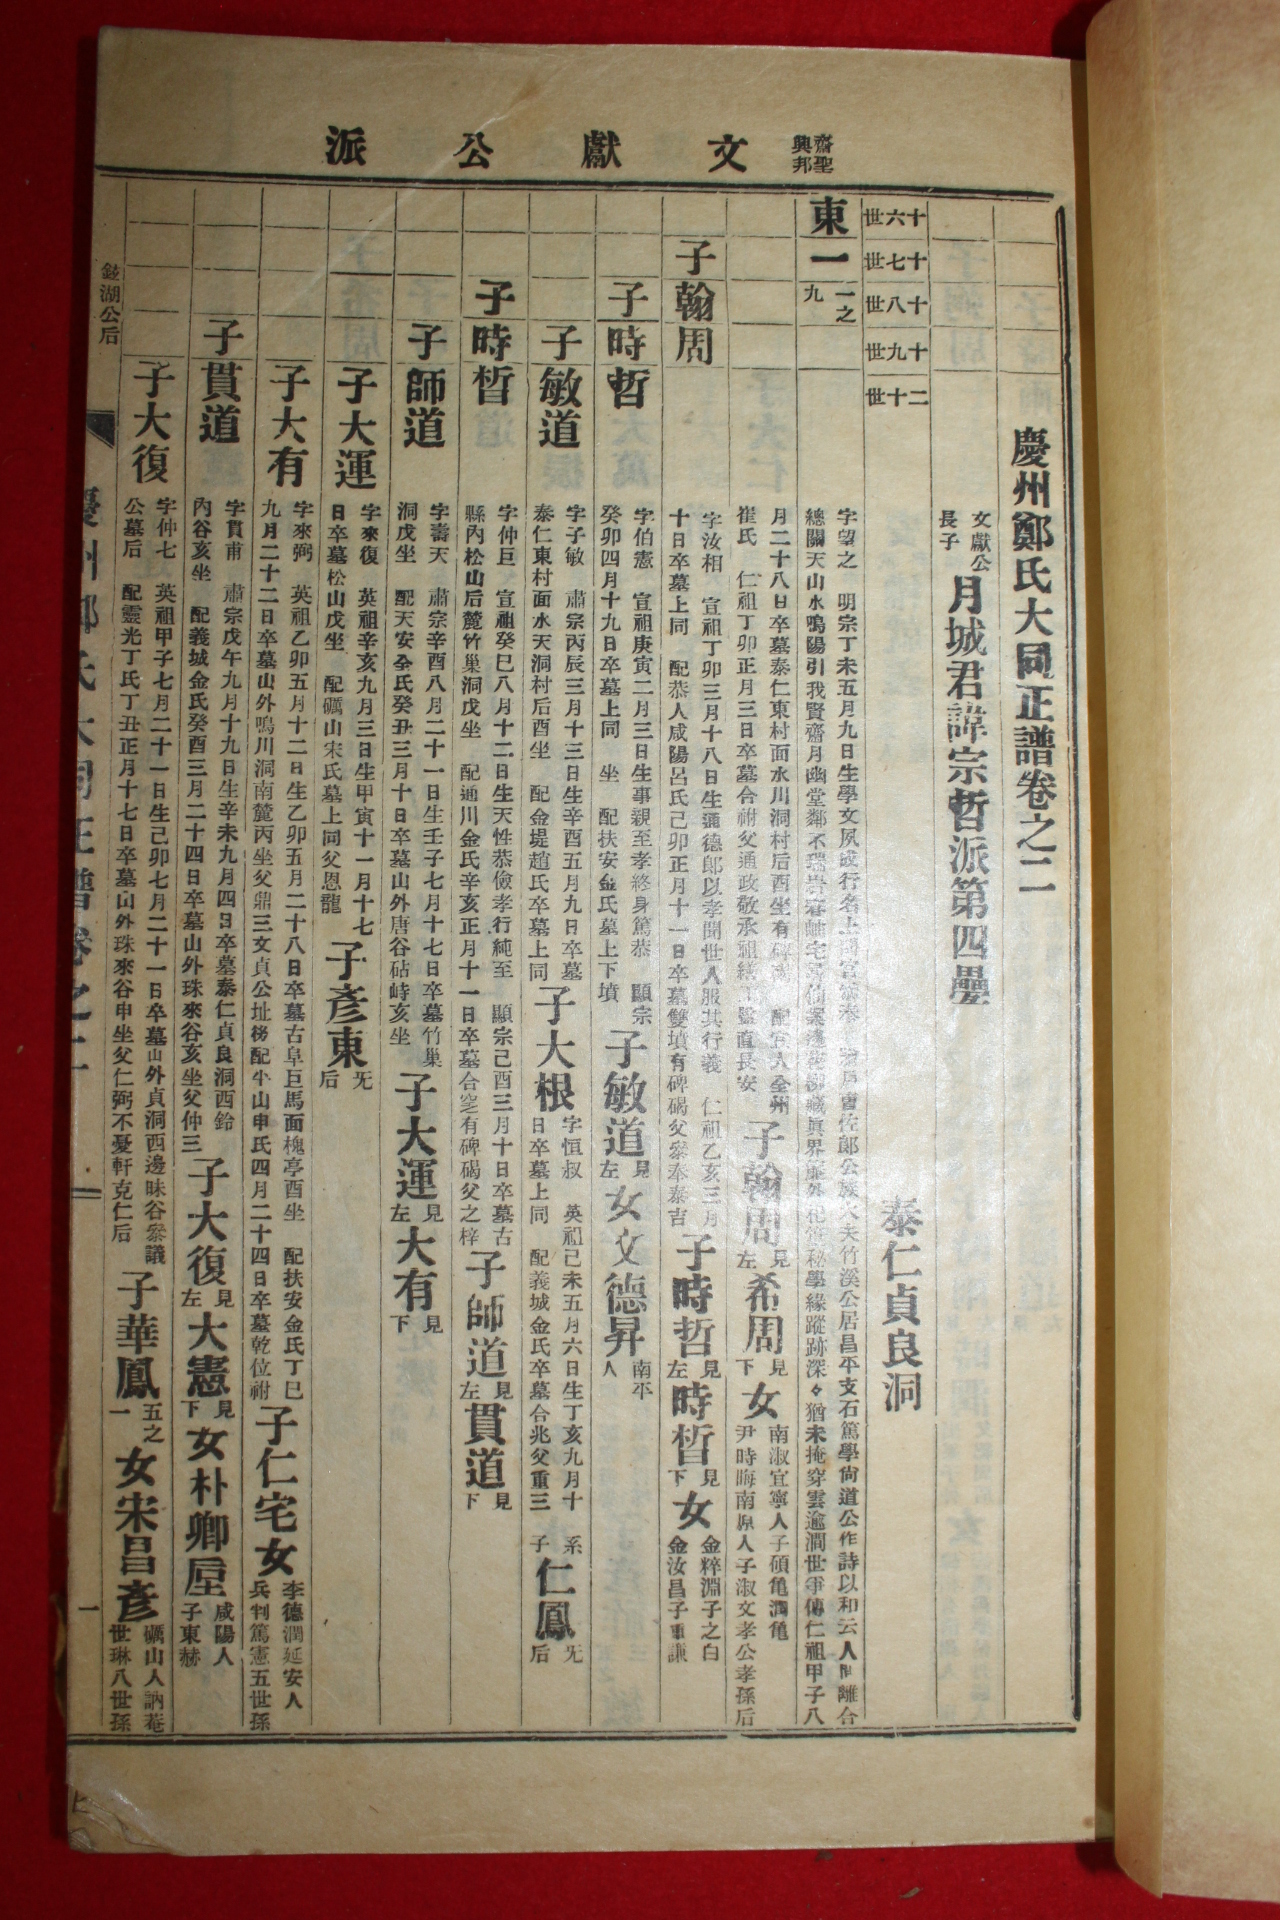 齋聖興邦
文獻公派
慶州鄭氏大同正譜卷之二
文獻公長子
月城君諱宗哲派第四疊
十六世
十七世
十八世
十九世
二十世
泰仁貞良洞
東一
一之九
字望之 明宗丁未五月九日生學文夙
總關天山水鳴陽引我賢齋月幽堂鄰不
月二十八日卒墓泰仁東村面水川洞村后酉坐有碑
崔氏 仁祖丁卯正月三日卒墓合祔父通政敬承祖
子翰周 見左
希周 見下
女
南淑宜寧人子碩龜潤龜
尹時晦南原人子淑文孝公孝孫后
子翰周
字汝相 宣祖丁卯三月十八日生通德郎以孝聞世人服其行義 仁祖乙亥三月
十日卒墓上同 配恭人咸陽呂氏己卯正月十一日卒墓雙墳有碑碣父參奉泰吉
子時哲 見左
時晳 見下
女
金粹淵子之白
金汝昌子重謙
子時哲
字伯憲 宣祖庚寅二月三日生事親至孝終身篤恭 顯宗
癸卯四月十九日卒墓上同 坐 配扶安金氏墓上下墳
子敏道 見左
女文德昇 南平人
子敏道
字子敏 肅宗丙辰三月十三日生辛酉五月九日卒墓
泰仁東村面水天洞村后酉坐 配金堤趙氏卒墓上同
子大根
字恒叔 英祖己未五月六日生丁亥九月十
日卒墓上同 配義城金氏卒墓合兆父重三
系子
仁鳳 旡后
子時晳
字仲巨 宣祖癸巳八月十二日生天性恭儉孝行純至 顯宗己酉三月十日卒墓古
縣內松山后麓竹巢洞戊坐 配通川金氏辛亥正月十一日卒墓合窆有碑碣父之梓
子師道 見左
貫道 見下
子師道
字壽天 肅宗辛酉八月二十一日生壬子七月十七日卒墓竹巢
洞戊坐 配天安全氏癸丑三月十日卒墓山外唐谷砧峙亥坐
子大運 見左
大有 見下
子大運
字來復 英祖辛亥九月三日生甲寅十一月十七
日卒墓松山戊坐 配礪山宋氏墓上同父恩龍
子彥東 旡后
子大有
字來弼 英祖乙卯五月十二日生乙卯五月二十八日卒墓古阜巨馬面槐亭酉坐 配扶安金氏丁巳
九月二十二日卒墓山外鳴川洞南麓丙坐父鼎三文貞公址 配平山申氏四月二十四日卒墓乾位祔
子仁宅
女
李德潤延安人
兵判篤憲五世孫
子貫道
字貫甫 肅宗戊午九月十九日生辛未九月四日卒墓泰仁貞良洞西鈴
內谷亥坐 配義城金氏癸酉三月二十四日卒墓山外珠來谷亥坐父仲三
子大復 見左
大憲 見下
女朴卿垕
咸陽人
子東赫
子大復
字仲七 英祖甲子七月二十一日生己卯七月二十一日卒墓山外貞洞西邊昧谷參議
公墓后 配靈光丁氏丁丑正月十七日卒墓山外珠來谷申坐父仁弼不憂軒克仁后
子華鳳 五之一
女宋昌彥
礪山人訥菴
世琳八世孫
鎹湖公后
慶州鄭氏大同正譜卷之二
一